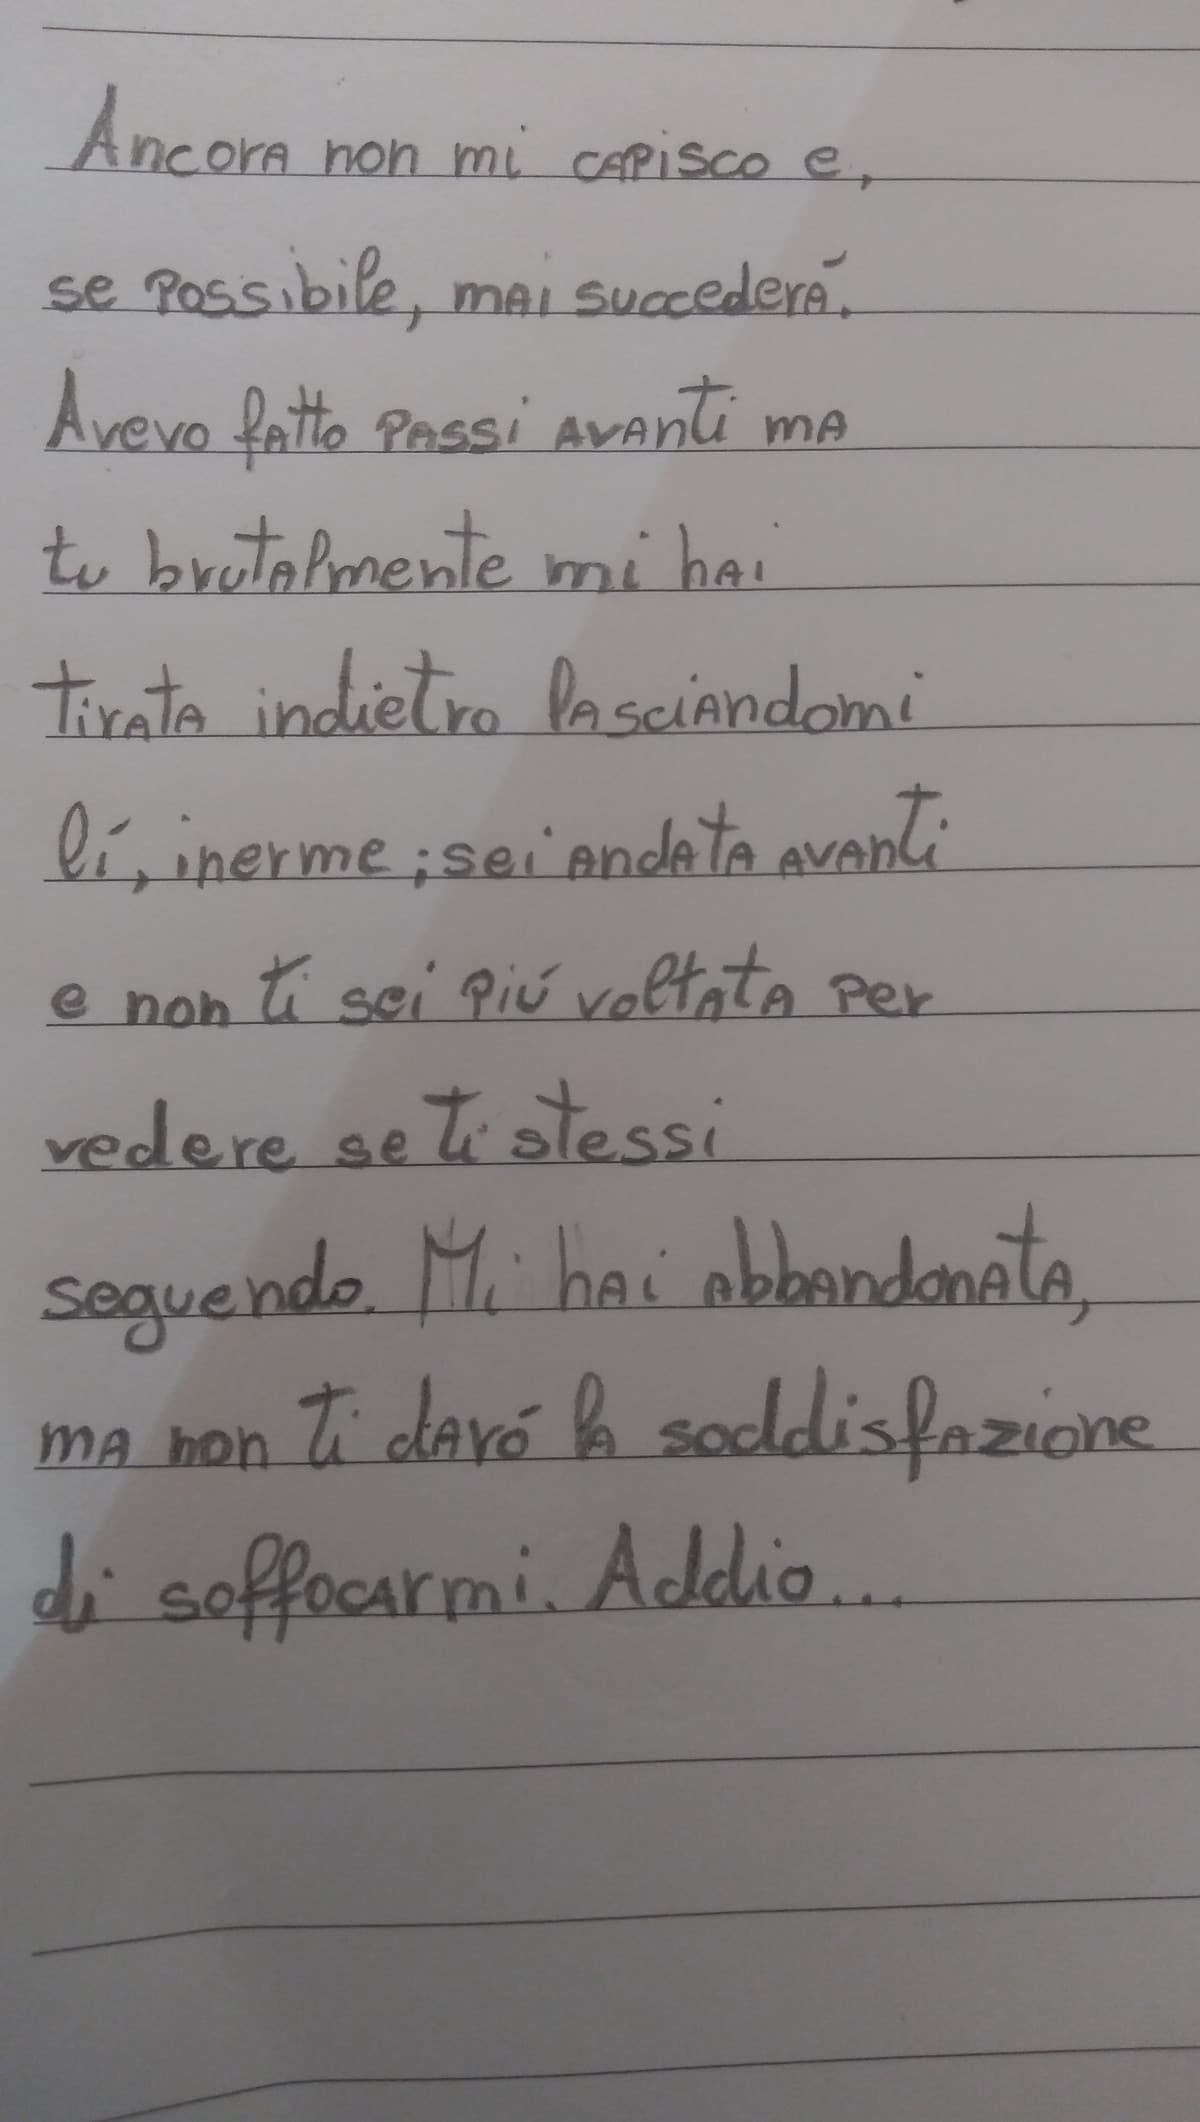 Ancora non mi capisco e,
se possibile, mai succederá.
Avevo fatto passi avanti ma
tu brutalmente mi hai
tirata indietro lasciandomi
lí, inerme; sei andata avanti
e non ti sei piú voltata per
vedere se ti stessi
seguendo. Mi hai abbandonata,
ma non ti daró la soddisfazione
di soffocarmi. Addio...